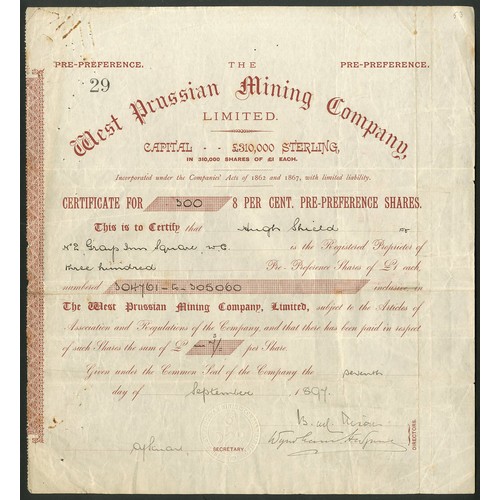 PRE-PREFERENCE. THE PRE-PREFERENCE.
29
West Prussian Mining Company,
LIMITED.
CAPITAL - - £310,000 STERLING,
IN 310,000 SHARES OF £1 EACH.
Incorporated under the Companies' Acts of 1862 and 1867, with limited liability.
CERTIFICATE FOR 300 8 PER CENT. PRE-PREFERENCE SHARES.
This is to Certify that Hugh Shield
No 2 Grays Inn Square, W.C. is the Registered Proprietor of
three hundred Pre-Preference Shares of £1 each,
numbered 304761 - 305060 inclusive in
The West Prussian Mining Company, Limited, subject to the Articles of
Association and Regulations of the Company, and that there has been paid in respect
of such Shares the sum of £ per Share.
Given under the Common Seal of the Company the seventh
day of September 1897.
SECRETARY.
DIRECTORS.